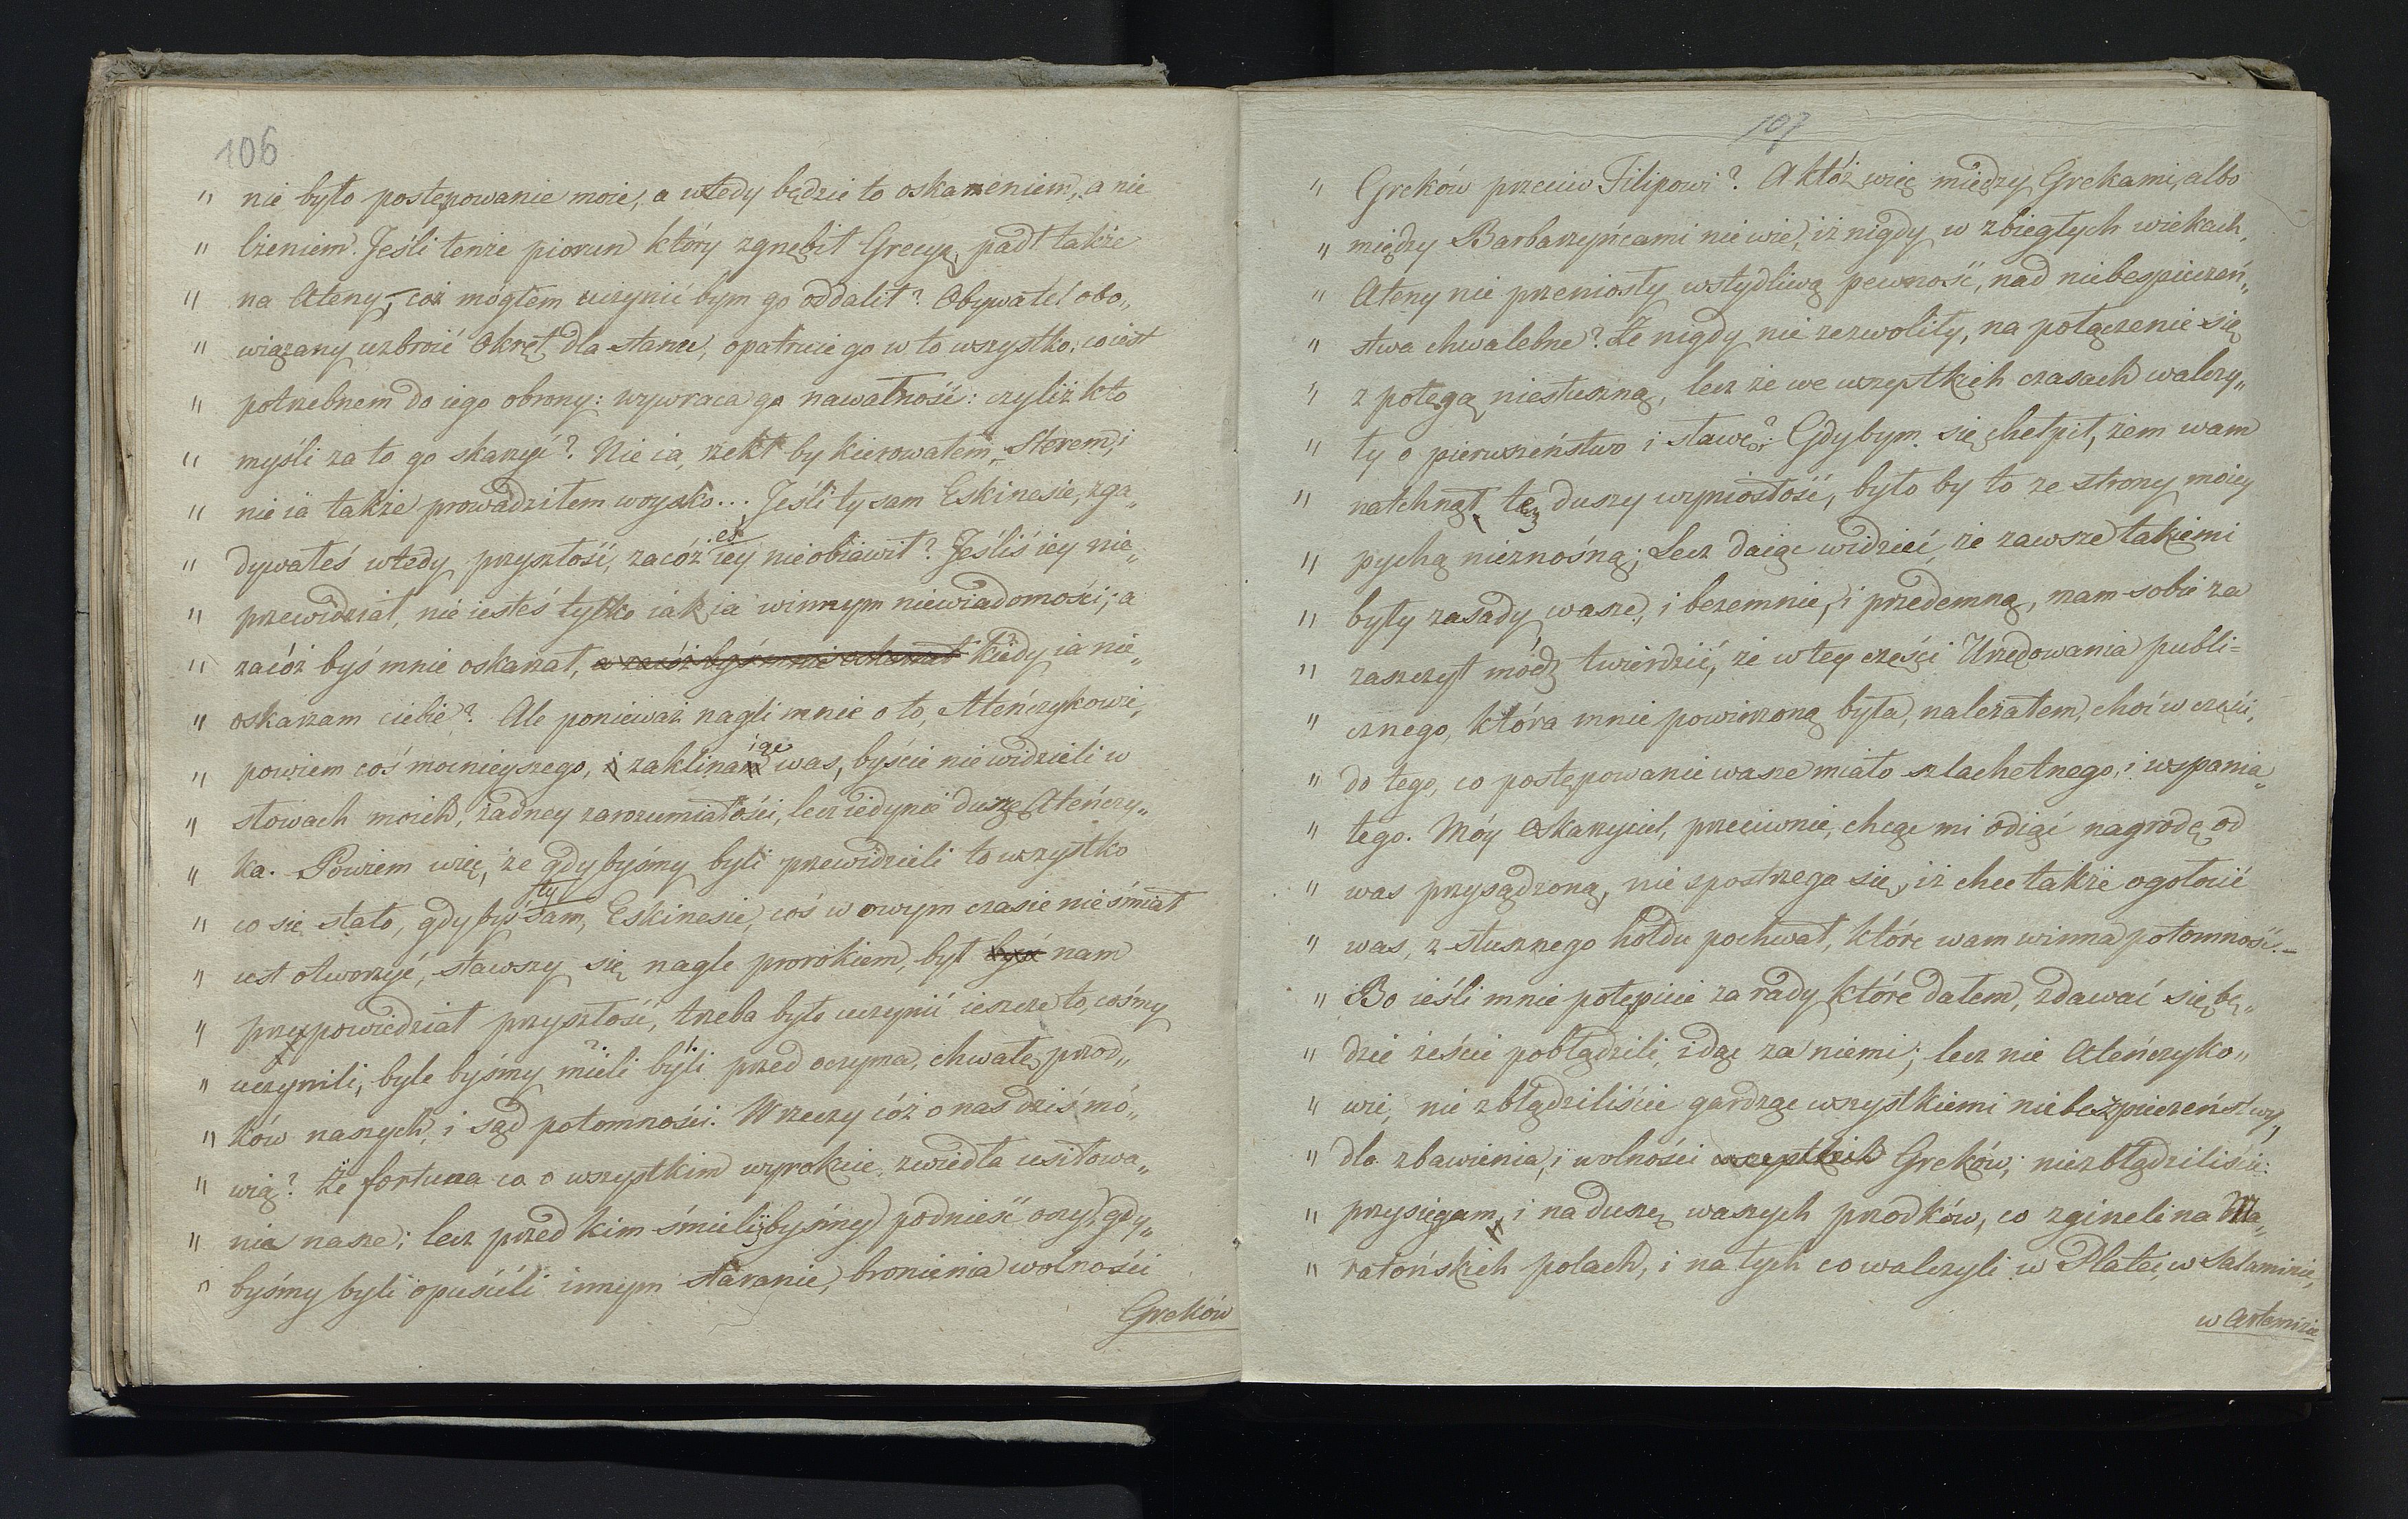 106
„ nie było postępowanie moie, a wtedy będzie to oskarżeniem, a nie
„ lżeniem. Jeśli tenże piorun który zgnębił Grecyę, padł także
„ na Ateny, coż mógłem uczynić bym go oddalił? Obywatel obo„
„ wiązany uzbroić Okręt dla stanu, opatruie go w to wszystko, co iest
„ potrzebnem do iego obrony: wywraca go nawałność: czyliż kto
„ myśli za to go skarżyć? Nie ia, rzekł by kierowałem Sterem, i
„ nie ia także prowadziłem woysko... Jeśli ty sam Eskinesie, zga„
„ dywałeś wtedy przyszłość, zacóżeś iey nieobiawił? Jeśliś iey nie„
„ przewidział, nie iesteś tylko iak ia winnym niewiadomości; a
„ zacóż byś mnie oskarżał, a zacóż byś mnie oskarżał kiedy ia nie„
„ oskarżam ciebie? Ale ponieważ nagli mnie o to, Ateńczykowie,
„ powiem coś mocnieyszego, i zaklinaiąc was, byście nie widzieli w
„ słowach moich, żadney zarozumiałości, lecz iedynie duszę Ateńczy„
„ ka. Powiem więc, że gdybyśmy byli przewidzieli to wszystko
„ co się stało, gdybyś ty sam, Eskinesie, coś w owym czasie nie śmiał
„ ust otworzyć, stawszy się nagle prorokiem, był być nam
„ przepowiedział przyszłość, trzeba było uczynić ieszcze to, cośmy
„ uczynili, byle byśmy mieli byli przed oczyma, chwałę przod„
„ ków naszych, i sąd potomności. W rzeczy cóż o nas dziś mó„
„ wią? Że fortuna co o wszystkim wyrokuie, zwiedła usiłowa„
„ nia nasze; lecz przed kim śmielibyśmy podnieść oczy, gdy„
„ byśmy byli opuścili innym staranie, bronienia wolności
Greków
107
„ Greków przeciw Filipowi? A któż więc między Grekami, albo
„ między Barbarzyńcami nie wie, iż nigdy w zbiegłych wiekach,
„ Ateny nie przeniosły wstydliwą pewność, nad niebespieczeń„
„ stwa chwalebne? Że nigdy nie zezwoliły, na połączenie się
„ z potęgą niesłuszną, lecz że we wszystkich czasach walczy„
„ ły o pierwszeństwo i sławę? Gdybym się chełpił, żem wam
„ natchnął tę duszy wyniosłość, było by to ze strony moiey
„ pychą nieznośną; Lecz daiąc widzieć, że zawsze takiemi
„ były zasady wasze, i bezemnie, i przedemną, mam sobie za
„ zaszczyt módz twierdzić, że w tey części Urzędowania publi=
„ cznego, która mnie powierzoną była, należałem, choć w części,
„ do tego, co postępowanie wasze miało szlachetnego, i wspania„
„ łego. Móy Oskarżyciel, przeciwnie, chcąc mi odiąć nagrodę od
„ was przysądzoną, nie spostrzega się, iż chce także ogołocić
„ was, z słusznego hołdu pochwał, które wam winna potomność. –
„ Bo ieśli mnie potępicie za rady które dałem, zdawać się bę„
„ dzie żeście pobłądzili, idąc za niemi; lecz nie Ateńczyko„
„ wie, nie zbłądziliście gardząc wszystkiemi niebezpieczeństwy,
„ dla zbawienia, i wolności wszystkich Greków; niezbłądziliście:
„ przysięgam, i na duszę waszych przodków, co zgineli na Ma„
„ ratońskich polach, i na tych co walczyli w Platei, w Salaminie,
w Artemizie